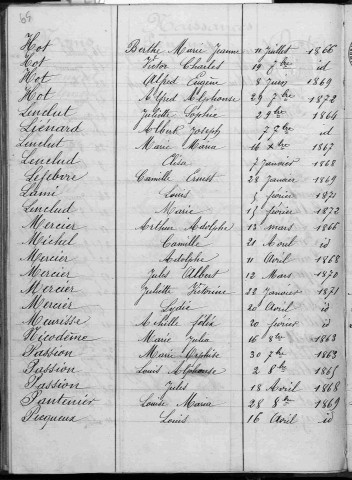 59
Hot Berthe Marie Jeanne 11 Juillet 1866
Hot Victor Charles 19 7bre id
Hot Alfred Eugène 8 Juin 1869
Hot Alfred Alphonse 29 7bre 1872
Lenclut Juliette Sophie 2 9bre 1864
Liénard Albert Joseph 7 7bre id
Lenclut Marie Maria 16 Xbre 1867
Lenclud Elisa 7 Janvier 1868
Lefebvre Camille Ernest 28 Janvier 1869
Lami Louis 5 février 1871
Lenclud Marie 15 février 1872
Mercier Arthur Adolphe 13 mars 1866
Michel Camille 21 Aout id
Mercier Adolphe 11 Avril 1868
Mercier Jules Albert 12 Mars 1870
Mercier Juliette Victorine 22 Janvier 1871
Mercier Lydie 20 Avril id
Meurisse Achille 20 février id
Nicodème Marie Julia 16 8bre 1863
Passion Marie 30 7bre 1863
Passion Louis Alphonse 2 8bre 1865
Passion Jules 18 Avril 1868
Pantenier Louise Maria 28 8bre 1869
Picqueux Louis 16 Avril id